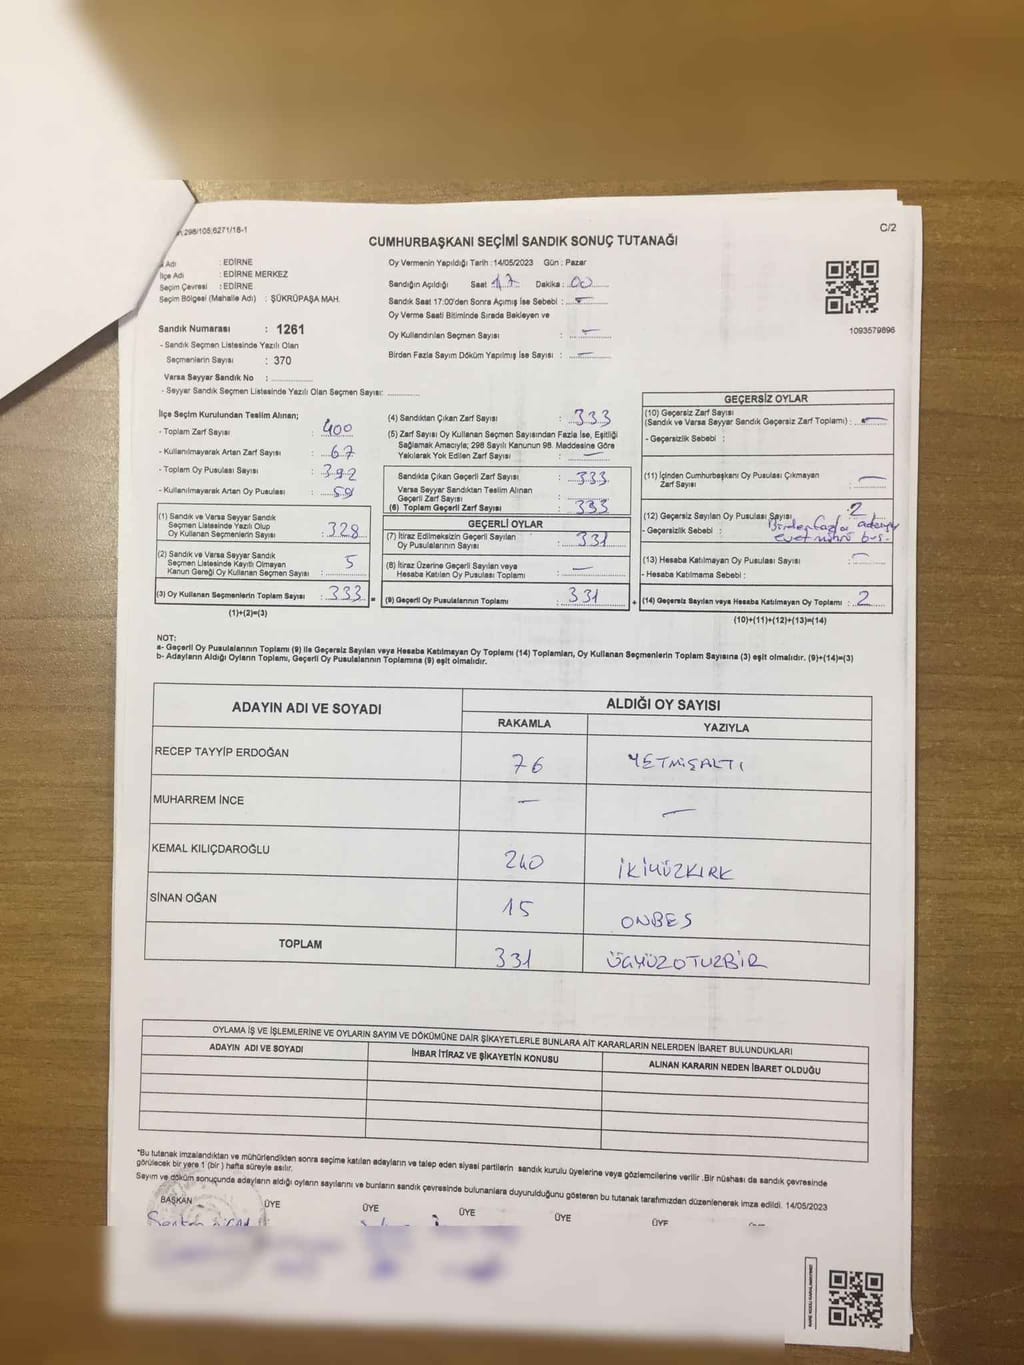 298/105;6271/18-1
C/2
CUMHURBAŞKANI SEÇİMİ SANDIK SONUÇ TUTANAĞI
Adı : EDİRNE
İlçe Adı : EDİRNE MERKEZ
Seçim Çevresi : EDİRNE
Seçim Bölgesi (Mahalle Adı) : ŞÜKRÜPAŞA MAH.
Sandık Numarası : 1261
- Sandık Seçmen Listesinde Yazılı Olan
Seçmenlerin Sayısı : 370
Varsa Seyyar Sandık No :
- Seyyar Sandık Seçmen Listesinde Yazılı Olan Seçmen Sayısı:
Oy Vermenin Yapıldığı Tarih : 14/05/2023 Gün : Pazar
Sandığın Açıldığı Saat 17 Dakika : 00
Sandık Saat 17:00'den Sonra Açımış İse Sebebi : –
Oy Verme Saati Bitiminde Sırada Bekleyen ve
Oy Kullandırılan Seçmen Sayısı : –
Birden Fazla Sayım Döküm Yapılmış İse Sayısı : –
1093579896
İlçe Seçim Kurulundan Teslim Alınan;
- Toplam Zarf Sayısı : 400
- Kullanılmayarak Artan Zarf Sayısı : 67
- Toplam Oy Pusulası Sayısı : 392
- Kullanılmayarak Artan Oy Pusulası : 59
(1) Sandık ve Varsa Seyyar Sandık
Seçmen Listesinde Yazılı Olup
Oy Kullanan Seçmenlerin Sayısı : 328
(2) Sandık ve Varsa Seyyar Sandık
Seçmen Listesinde Kayıtlı Olmayan
Kanun Gereği Oy Kullanan Seçmen Sayısı : 5
(3) Oy Kullanan Seçmenlerin Toplam Sayısı : 333 =
(1)+(2)=(3)
(4) Sandıktan Çıkan Zarf Sayısı : 333
(5) Zarf Sayısı Oy Kullanan Seçmen Sayısından Fazla İse, Eşitliği
Sağlamak Amacıyla; 298 Sayılı Kanunun 98. Maddesine Göre
Yakılarak Yok Edilen Zarf Sayısı : –
Sandıkta Çıkan Geçerli Zarf Sayısı : 333
Varsa Seyyar Sandıktan Teslim Alınan
Geçerli Zarf Sayısı :
(6) Toplam Geçerli Zarf Sayısı : 333
GEÇERLİ OYLAR
(7) İtiraz Edilmeksizin Geçerli Sayılan
Oy Pusulalarının Sayısı : 331
(8) İtiraz Üzerine Geçerli Sayılan veya
Hesaba Katılan Oy Pusulası Toplamı : –
(9) Geçerli Oy Pusulalarının Toplamı : 331 +
GEÇERSİZ OYLAR
(10) Geçersiz Zarf Sayısı
(Sandık ve Varsa Seyyar Sandık Geçersiz Zarf Toplamı) : –
- Geçersizlik Sebebi :
(11) İçinden Cumhurbaşkanı Oy Pusulası Çıkmayan
Zarf Sayısı : –
(12) Geçersiz Sayılan Oy Pusulası Sayısı : 2
- Geçersizlik Sebebi : Birden fazla adaya
evet mührü
(13) Hesaba Katılmayan Oy Pusulası Sayısı : –
- Hesaba Katılmama Sebebi :
(14) Geçersiz Sayılan veya Hesaba Katılmayan Oy Toplamı : 2
(10)+(11)+(12)+(13)=(14)
NOT:
a- Geçerli Oy Pusulalarının Toplamı (9) ile Geçersiz Sayılan veya Hesaba Katılmayan Oy Toplamı (14) Toplamları, Oy Kullanan Seçmenlerin Toplam Sayısına (3) eşit olmalıdır. (9)+(14)=(3)
b- Adayların Aldığı Oyların Toplamı, Geçerli Oy Pusulalarının Toplamına (9) eşit olmalıdır.
ADAYIN ADI VE SOYADI
ALDIĞI OY SAYISI
RAKAMLA YAZIYLA
RECEP TAYYİP ERDOĞAN 76 YETMİŞALTI
MUHARREM İNCE – –
KEMAL KILIÇDAROĞLU 240 İKİYÜZKIRK
SİNAN OĞAN 15 ONBEŞ
TOPLAM 331 ÜÇYÜZOTUZBİR
OYLAMA İŞ VE İŞLEMLERİNE VE OYLARIN SAYIM VE DÖKÜMÜNE DAİR ŞİKAYETLERLE BUNLARA AİT KARARLARIN NELERDEN İBARET BULUNDUKLARI
ADAYIN ADI VE SOYADI İHBAR İTİRAZ VE ŞİKAYETİN KONUSU ALINAN KARARIN NEDEN İBARET OLDUĞU
*Bu tutanak imzalandıktan ve mühürlendikten sonra seçime katılan adayların ve talep eden siyasi partilerin sandık kurulu üyelerine veya gözlemcilerine verilir .Bir nüshası da sandık çevresinde
görülecek bir yere 1 (bir ) hafta süreyle asılır.
Sayım ve döküm sonucunda adayların aldığı oyların sayılarını ve bunların sandık çevresinde bulunanlara duyurulduğunu gösteren bu tutanak tarafımızdan düzenlenerek imza edildi. 14/05/2023
BAŞKAN ÜYE ÜYE ÜYE ÜYE ÜYE